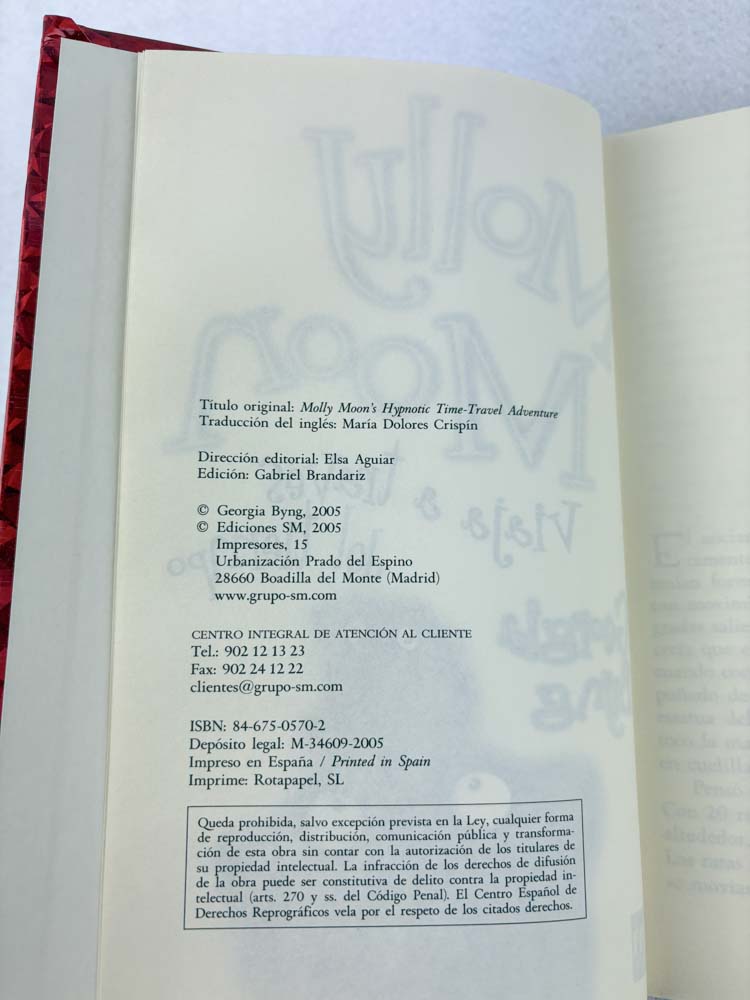 Título original: Molly Moon's Hypnotic Time-Travel Adventure
Traducción del inglés: María Dolores Crispín
Dirección editorial: Elsa Aguiar
Edición: Gabriel Brandariz
© Georgia Byng, 2005
© Ediciones SM, 2005
Impresores, 15
Urbanización Prado del Espino
28660 Boadilla del Monte (Madrid)
www.grupo-sm.com
CENTRO INTEGRAL DE ATENCIÓN AL CLIENTE
Tel.: 902 12 13 23
Fax: 902 24 12 22
clientes@grupo-sm.com
ISBN: 84-675-0570-2
Depósito legal: M-34609-2005
Impreso en España / Printed in Spain
Imprime: Rotapapel, SL
Queda prohibida, salvo excepción prevista en la Ley, cualquier forma
de reproducción, distribución, comunicación pública y transforma-
ción de esta obra sin contar con la autorización de los titulares de
su propiedad intelectual. La infracción de los derechos de difusión
de la obra puede ser constitutiva de delito contra la propiedad in-
telectual (arts. 270 y ss. del Código Penal). El Centro Español de
Derechos Reprográficos vela por el respeto de los citados derechos.